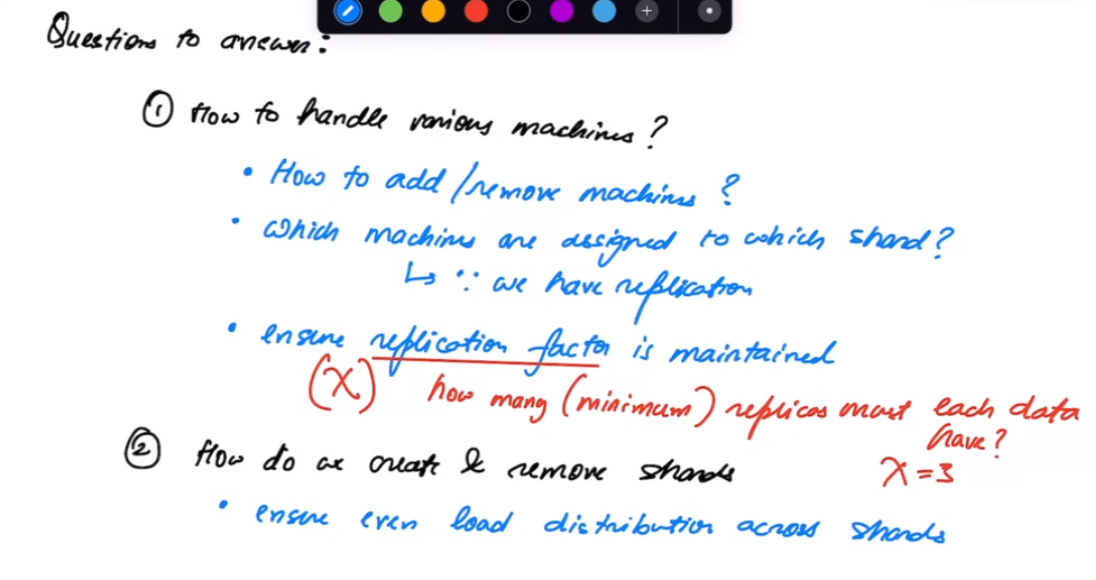 Questions to answer:
① How to handle various machines?
• How to add/remove machines?
• which machines are assigned to which shard?
↳ ∵ we have replication
• ensure replication factor is maintained
(x) how many (minimum) replicas must each data have?
x=3
② How do we create & remove shards
• ensure even load distribution across shards